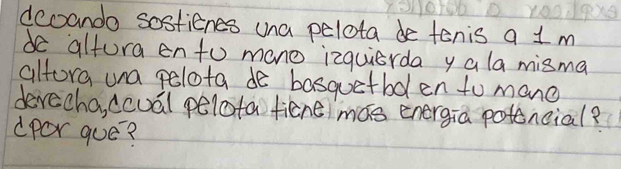 ¿cuando sostienes una pelota de tenis a 1 m
de altura en tu mano izquierda y a la misma
altura una pelota de basquetbol en tu mano
derecha, ¿cuál pelota tiene más energía potencial?
¿por qué?